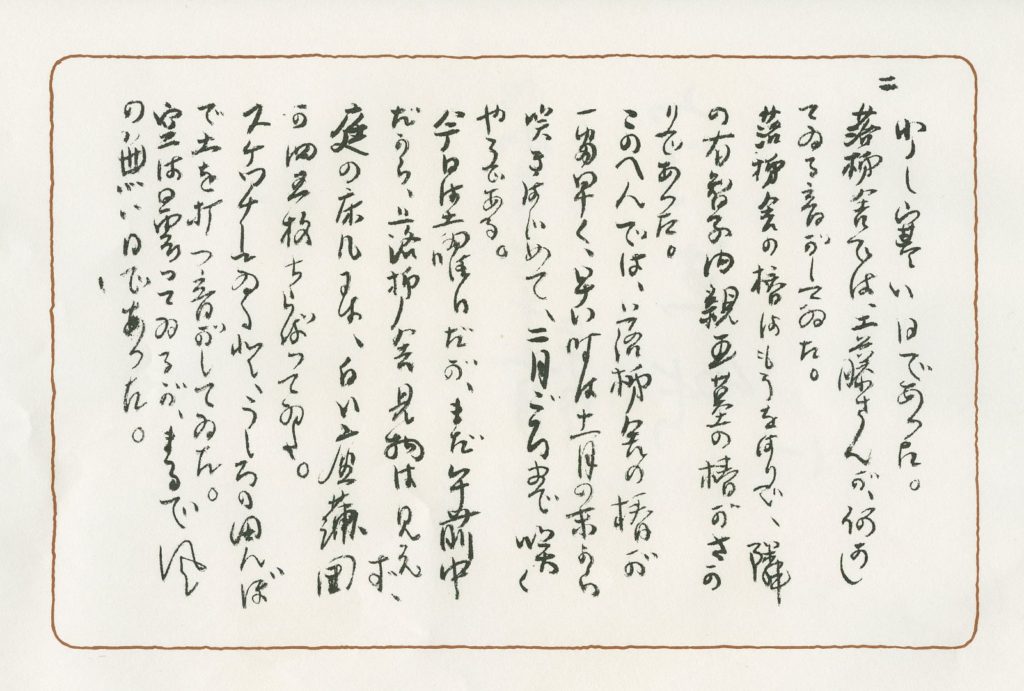 二
少し寒い日であった。
落柿舎では、工藤さんが、何かし
てゐる音がしてゐた。
落柿舎の椿はもうをはりで、隣
の有智子内親王墓の椿がさか
りであった。
このへんでは、落柿舎の椿が
一番早く、早い時は十一月の末から
咲きはじめて、二月ごろまで咲く
やうである。
今日は土曜日だが、まだ午前中
だから、落柿舎見物は見えず、
庭の床几には、白い座蒲団
が四五枚ちらばってゐる。
スケッチしてゐると、うしろの田んぼ
で土を打つ音がしてゐた。
空は曇ってゐるが、まるで風
の無い日であった。